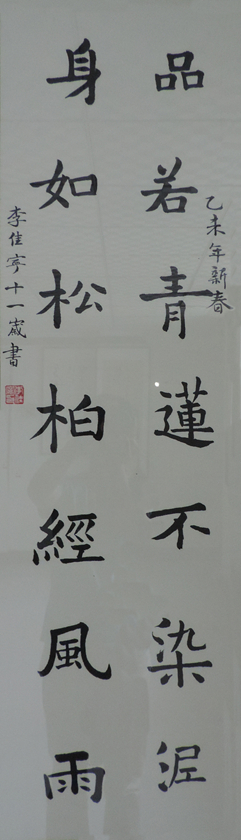 品若青蓮不染泥
乙未年新春
身如松柏經風雨
李佳寧十一歲書